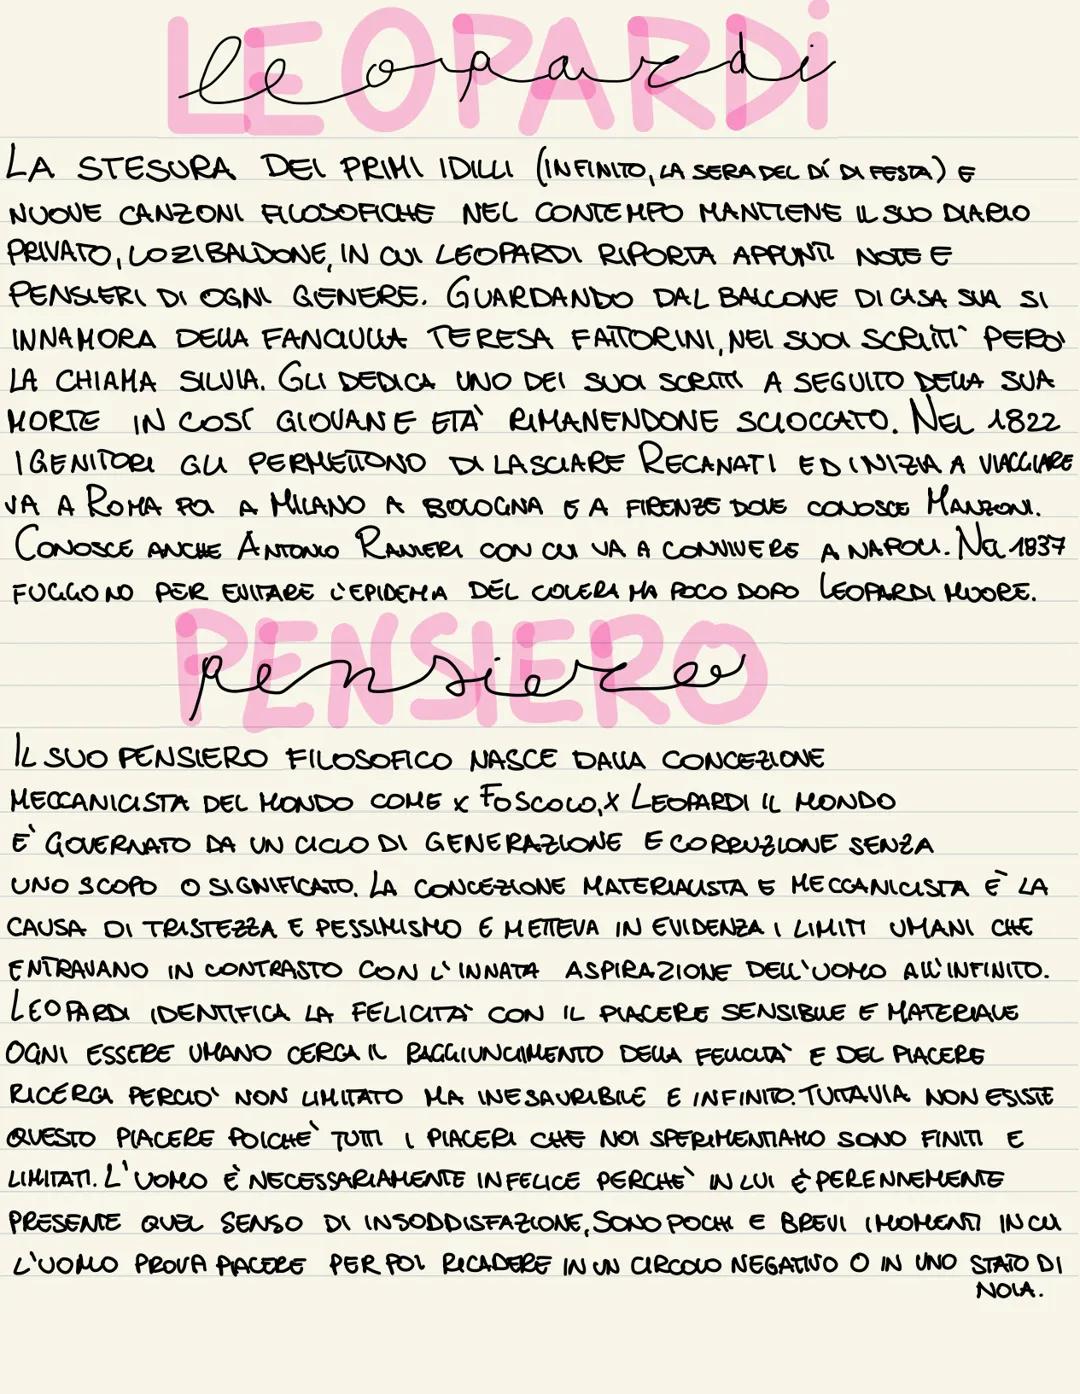 LEOPARDi
leopardi
LA STESURA DEI PRIMI IDILLI (INFINITO, LA SERA DEL DÍ DI FESTA) E
NUOVE CANZONI FILOSOFICHE NEL CONTEMPO MANTIENE IL SUO DIARIO
PRIVATO, LO ZIBALDONE, IN CUI LEOPARDI RIPORTA APPUNTI NOTE E
PENSIERI DI OGNI GENERE. GUARDANDO DAL BALCONE DI CASA SUA SI
INNAMORA DELLA FANCIULLA TERESA FATTORINI, NEI SUOI SCRITTI PERO'
LA CHIAMA SILVIA. GLI DEDICA UNO DEI SUOI SCRITTI A SEGUITO DELLA SUA
MORTE IN COSÍ GIOVANE ETÀ RIMANENDONE SCIOCCATO. NEL 1822
I GENITORI GLI PERMETTONO DI LASCIARE RECANATI ED INIZIA A VIAGGIARE
VA A ROMA POI A MILANO A BOLOGNA E A FIRENZE DOVE CONOSCE MANZONI.
CONOSCE ANCHE ANTONIO RANIERI CON CUI VA A CONVIVERE A NAPOLI. NEL 1837
FUGGONO PER EVITARE L'EPIDEMIA DEL COLERA MA POCO DOPO LEOPARDI MUORE.
PENSIERO
pensiero
IL SUO PENSIERO FILOSOFICO NASCE DALLA CONCEZIONE
MECCANICISTA DEL MONDO COME x FOSCOLO, X LEOPARDI IL MONDO
E' GOVERNATO DA UN CICLO DI GENERAZIONE E CORRUZIONE SENZA
UNO SCOPO O SIGNIFICATO. LA CONCEZIONE MATERIALISTA E MECCANICISTA È LA
CAUSA DI TRISTEZZA E PESSIMISMO E METTEVA IN EVIDENZA I LIMITI UMANI CHE
ENTRAVANO IN CONTRASTO CON L'INNATA ASPIRAZIONE DELL'UOMO ALL'INFINITO.
LEOPARDI IDENTIFICA LA FELICITA' CON IL PIACERE SENSIBILE E MATERIALE
OGNI ESSERE UMANO CERCA IL RAGGIUNGIMENTO DELLA FELICITA' E DEL PIACERE
RICERCA PERCIO' NON LIMITATO MA INESAURIBILE E INFINITO. TUTTAVIA NON ESISTE
QUESTO PIACERE POICHE' TUTTI I PIACERI CHE NOI SPERIMENTIAMO SONO FINITI E
LIMITATI. L'UOMO È NECESSARIAMENTE INFELICE PERCHE' IN LUI È PERENNEMENTE
PRESENTE QUEL SENSO DI INSODDISFAZIONE, SONO POCHI E BREVI I MOMENTI IN CUI
L'UOMO PROVA PIACERE PER POI RICADERE IN UN CIRCOLO NEGATIVO O IN UNO STATO DI
NOIA.